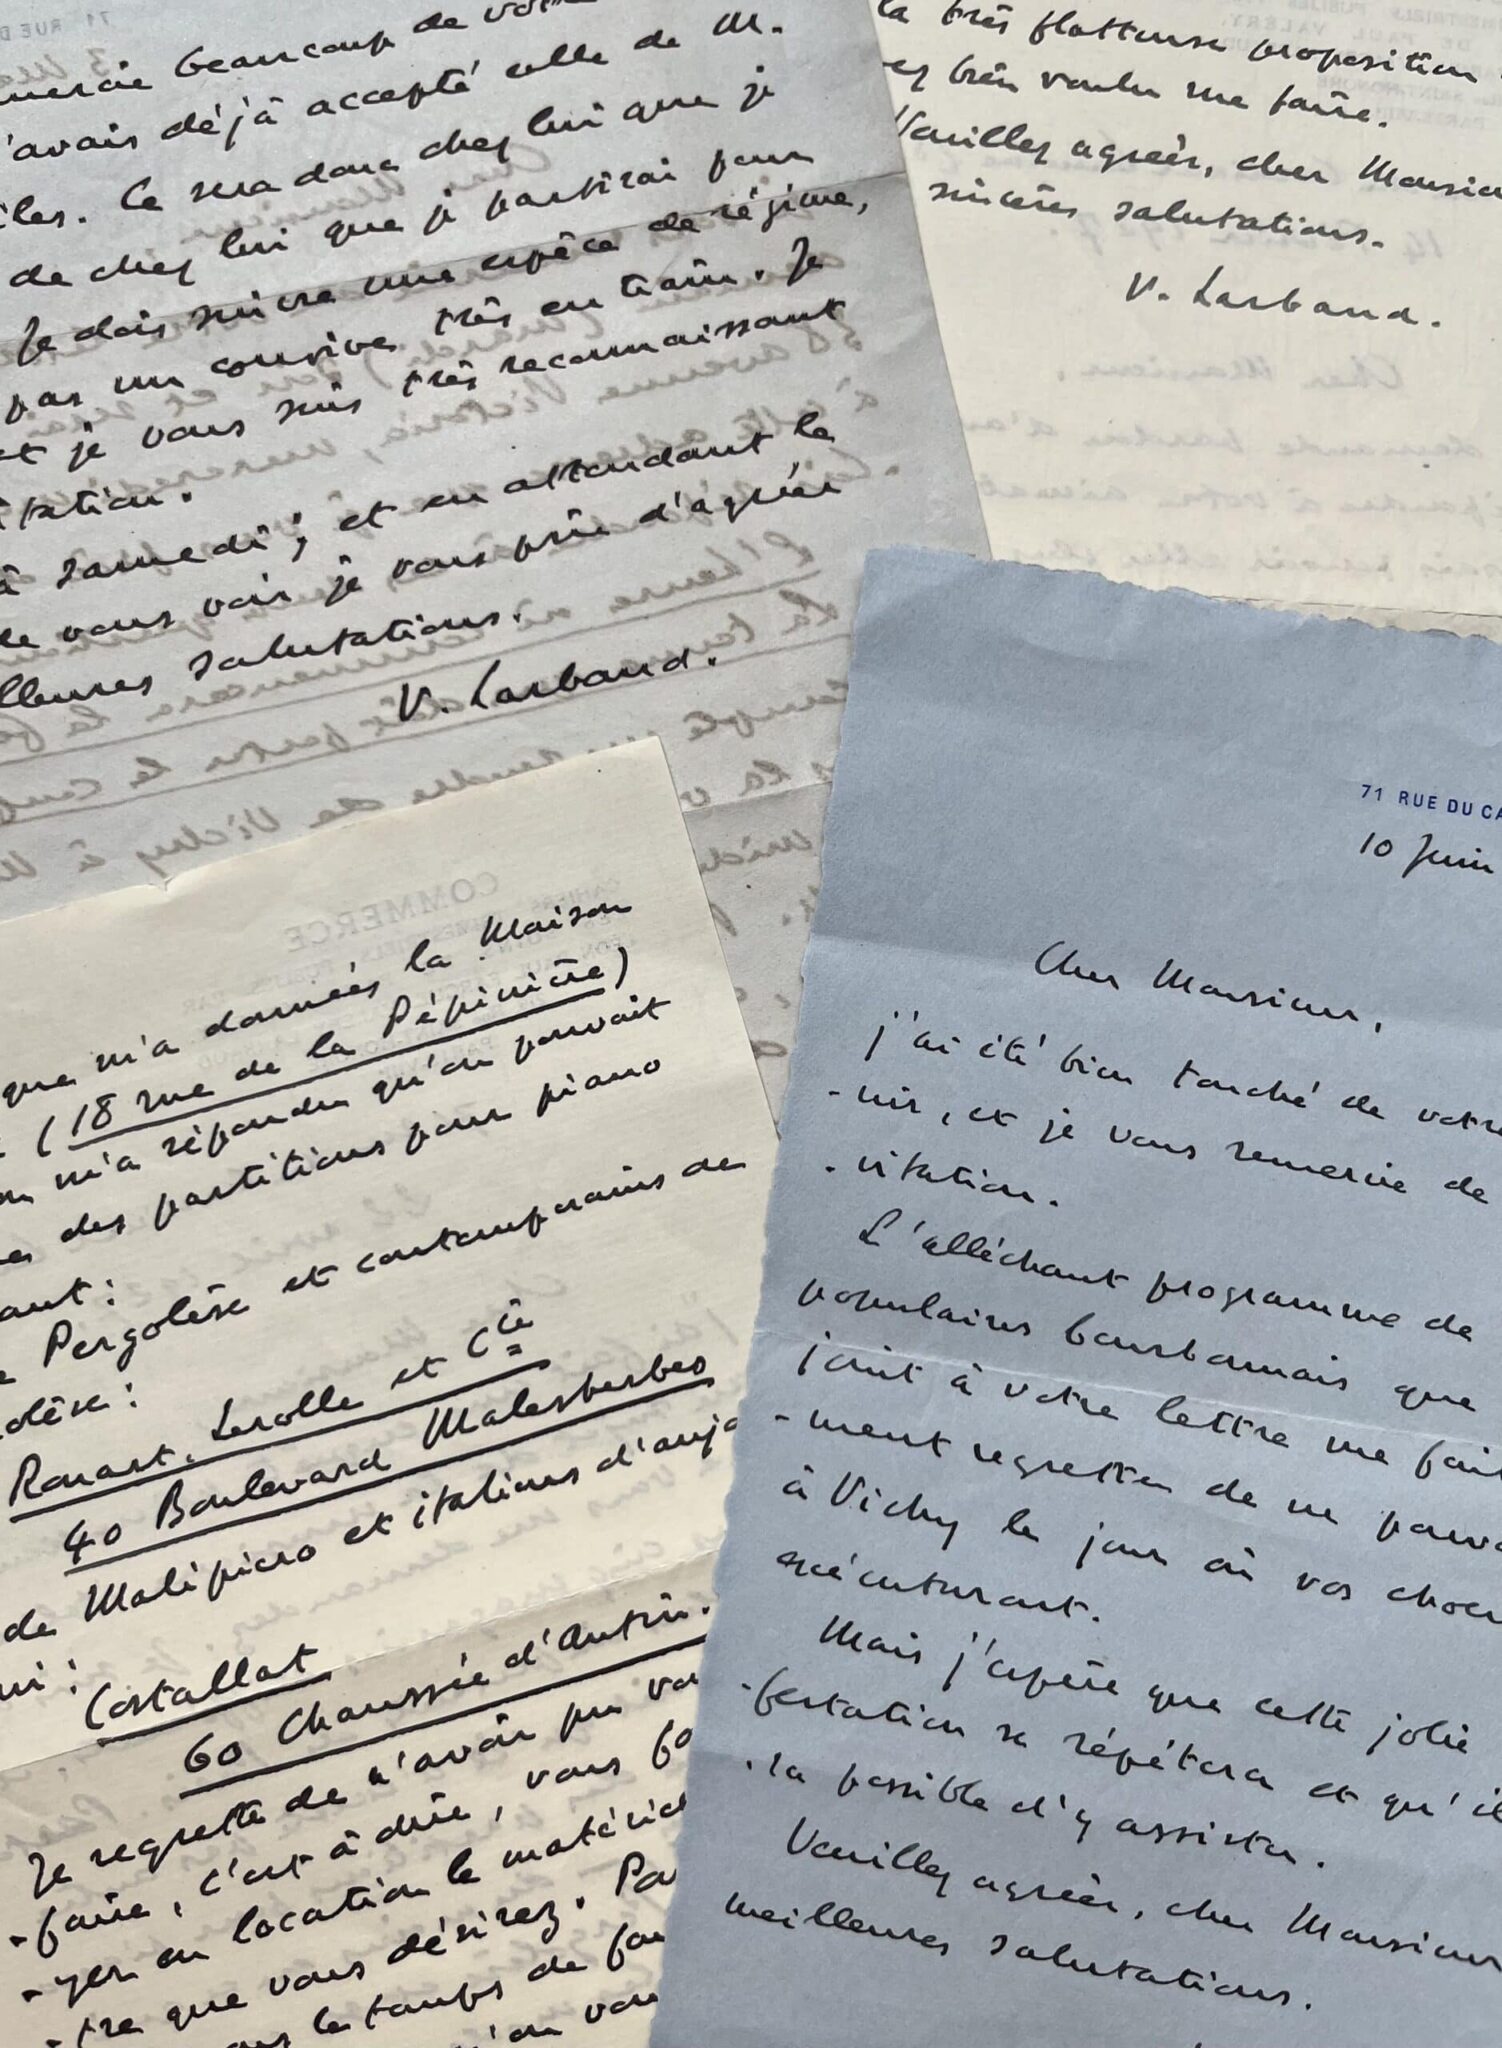 beaucoup de
'avais déjà accepté celle de M.
les. Ce sera donc chez lui que je
de chez lui que je partirai pour
Je dois suivre une espèce de régime,
pas un convive très en train. Je
et je vous suis très reconnaissant
itation.
à samedi ; et en attendant le
de vous voir je vous prie d'agréer
lleures salutations.
V. Larbaud.
la très flatteuse proposition
ez bien voulu me faire.
Veuillez agréer, cher Monsieu
sincères salutations.
V. Larbaud.
que m'a données la Maison
(18 rue de la Pépinière)
m'a répondu qu'on pouvait
des partitions pour piano
ant :
Pergolèse et contemporains de
olèse :
Rouart, Lerolle et Cie
40 Boulevard Malesherbes
de Malipiero et italiens d'aujo
ui :
Costallat
60 Chaussée d'Antin.
Je regrette de n'avoir pu vo
-faire, c'est à dire, vous fo
-yer en location le matériel
-tre que vous désirez. Pa
le temps de fai
71 RUE DU CA
10 Juin
Cher Monsieur,
J'ai été bien touché de votre
-nir, et je vous remercie de
-vitation.
L'alléchant programme de
populaires bourbonnais que
joint à votre lettre me fait
-ment regretter de ne pouvo
à Vichy le jour où vos choeu
exécuteront.
Mais j'espère que cette jolie
-festation se répétera et qu'il
-ra possible d'y assister.
Veuillez agréer, cher Monsieur
meilleures salutations.